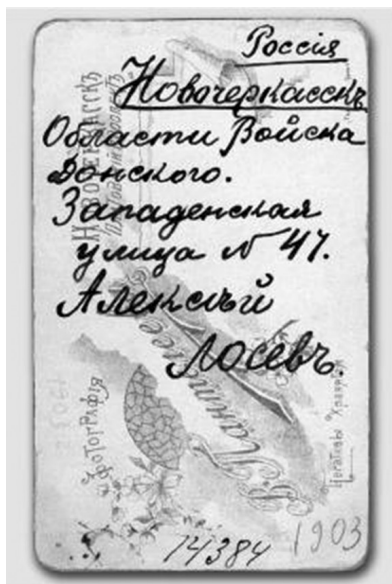 Россія
Новочеркасскъ
Области Войска
Донского.
Западенская
улица N 47.
Алексѣй
Лосевъ.
14384
1903
НОВОЧЕРКАССКЪ
ФОТОГРАФІЯ
Негативы хранятся